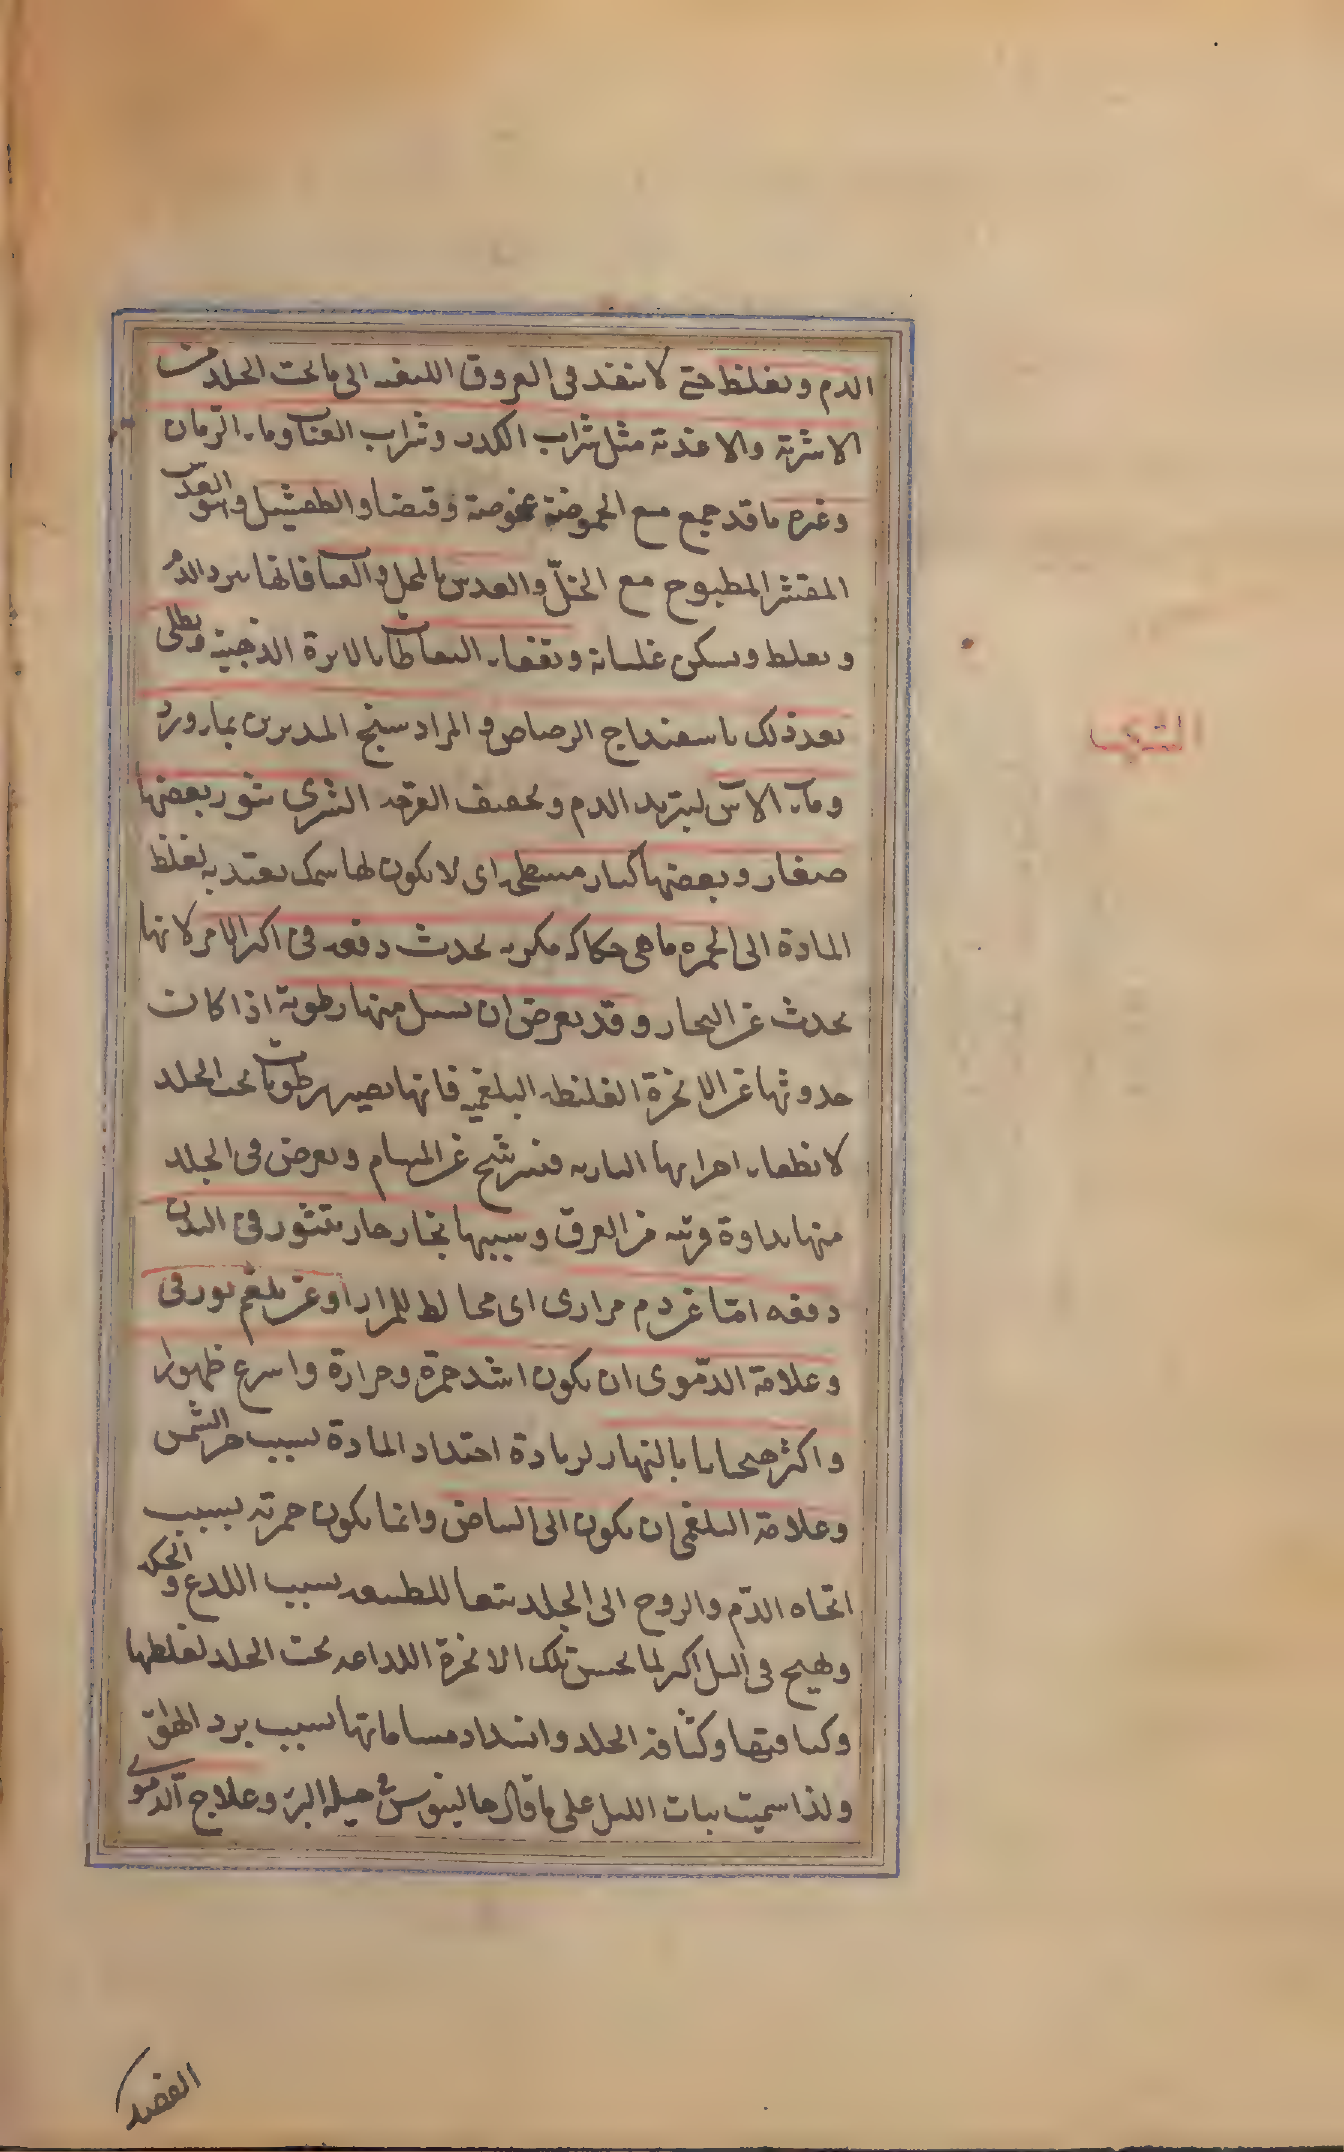 الدم وتغليظه حتى لا ينفذ فى العروق الليفيه الى ما تحت الجلد من
الاشربة والاغذية مثل شراب الكدر وشراب العناب وماء الرمان
وغيره ما قد جمع مع الحموضة عفوصة وقبضا والطفشيل والعدس
المقشر المطبوخ مع الخل والعدس بالخل والعناب فانها يبرد الدم
ويغلظ ويسكن غليانه وتفقاء النفاطات بالابرة الذهبية ويطلى
بعد ذلك باسفيداج الرصاص والمرادسنج المدبرين بماء ورد
وماء الآس لتبريد الدم وتجفيف القرحه الشرى بثور بعضها
صغار وبعضها كبار مسطحه اى لا يكون لها سمك يعتد به لغلظ
المادة الى الحمره ما هى حكاكه مكربه يحدث دفعه فى اكثر الامر لانها
يحدث عن البخار وقد يعرض ان يسيل منها رطوبة اذا كانت
حدوثها عن الابخرة الغليظه البلغميه فانها يصير رطوبات تحت الجلد
لانطفاء اجزائها الناريه فيترشح عن المسام ويعرض فى الجلد
منها نداوة قريبه من العرق وسببها بخار حار يتثور فى البدن
دفعه اما عن دم مرارى اى مخالط للمرار او عن بلغم بورقى
وعلامة الدموى ان يكون اشد حمرة وحرارة واسرع ظهورا
واكثر هيجانا بالنهار لزيادة احتداد المادة بسبب حر الشمس
وعلامة البلغمى ان يكون الى البياض وانما يكون حمرته بسبب
اتجاه الدم والروح الى الجلد تبعا للطبيعه بسبب اللدع والحكه
وتهيج فى الليل اكثر لما يحبس تلك الابخرة اللداعه تحت الجلد لغلظها
وكثافتها وكثافة الجلد وانسداد مساماتها بسبب برد الهواء
ولذا سميت ببنات الليل على ما قال جالينوس فى حيلة البرء وعلاج الدموى
الشرى
الفصد